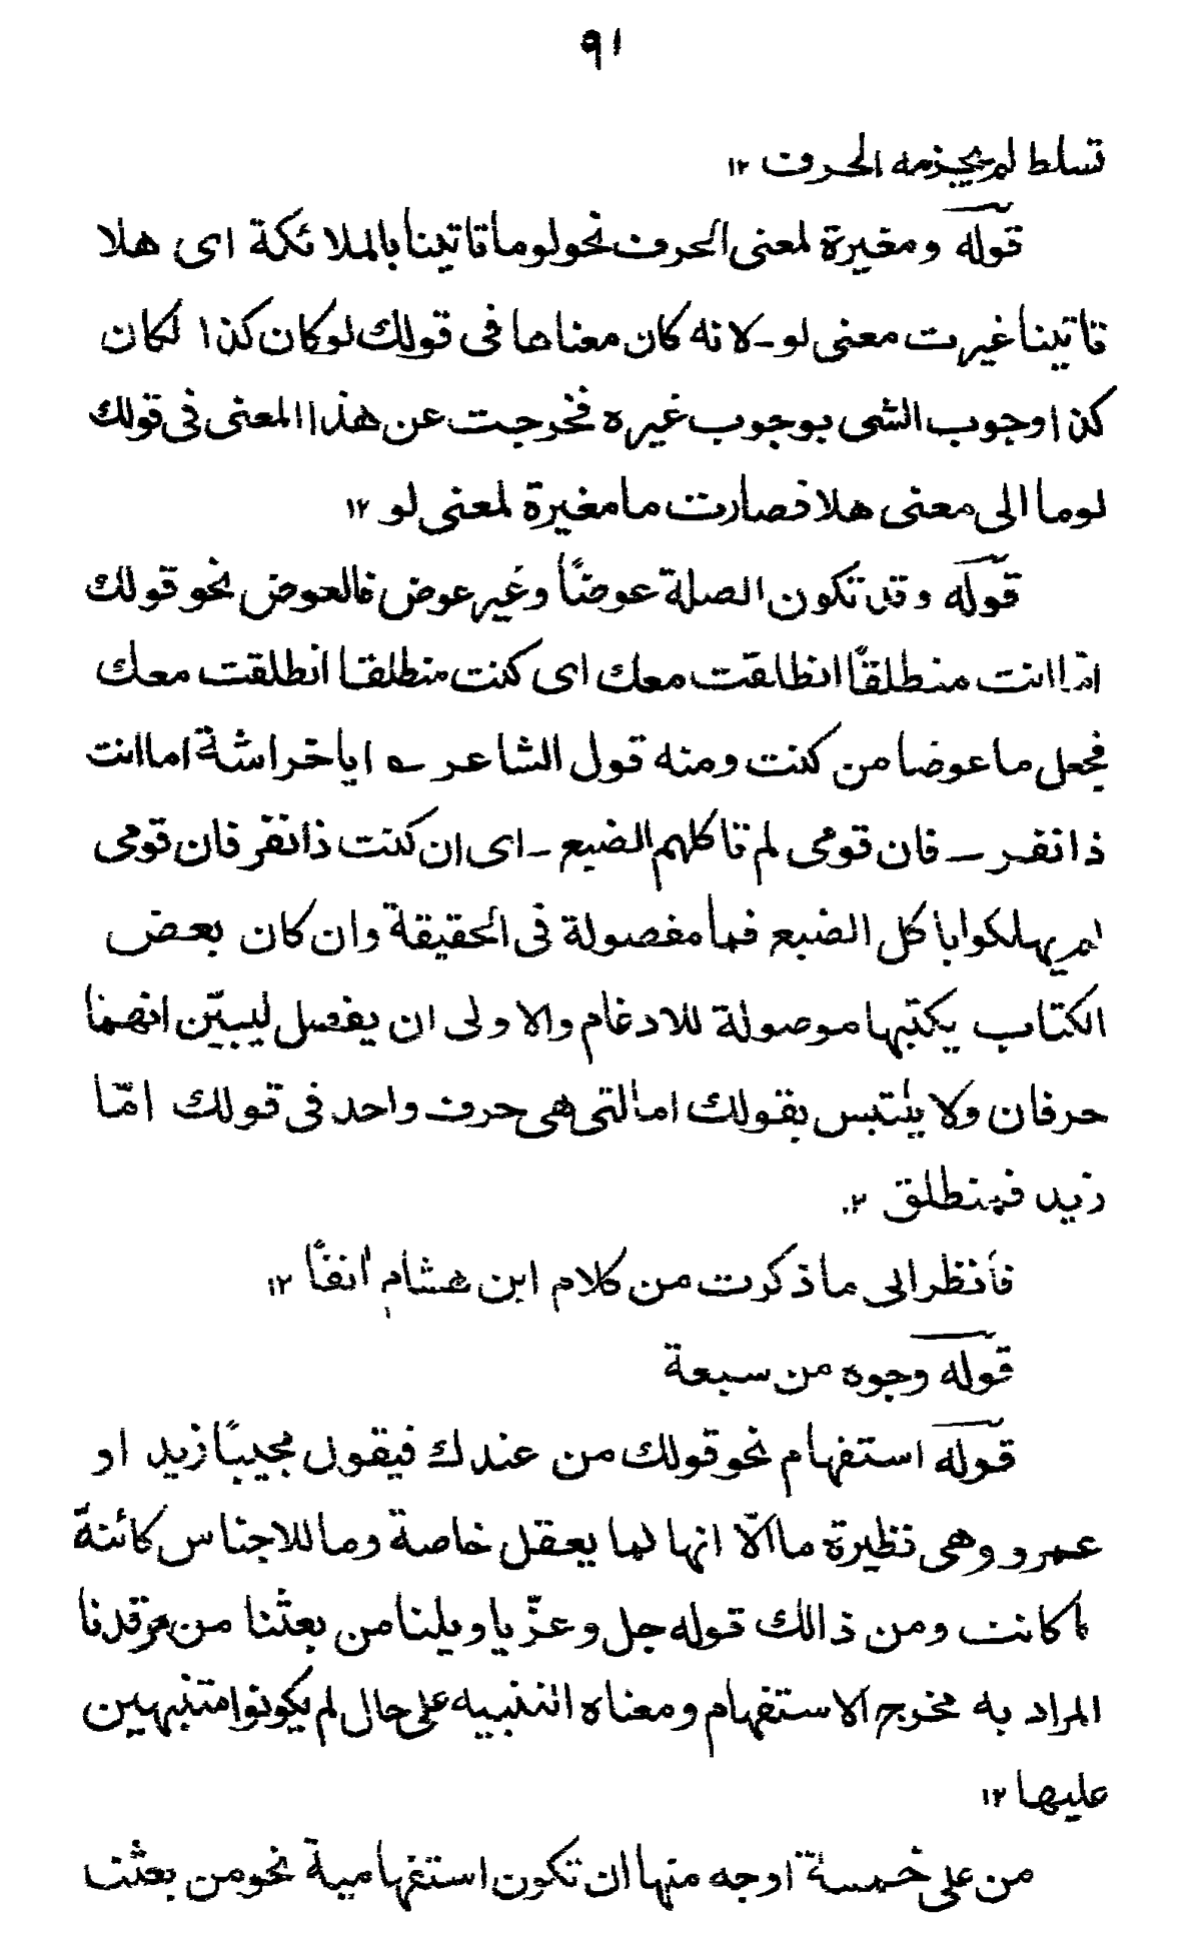 ۹۱
تسلط لم يجزمه الحرف ۱۲
قوله ومغيرة لمعنى الحرف نحو لوما تاتينا بالملائكة اى هلا
تاتينا غيرت معنى لو ـ لانه كان معناها فى قولك لو كان كذا لكان
كذا وجوب الشى بوجوب غيره فخرجت عن هذا المعنى فى قولك
لوما الى معنى هلا فصارت ما مغيرة لمعنى لو ۱۲
قوله وقد تكون الصلة عوضًا وغير عوض فالعوض نحو قولك
امّا انت منطلقًا انطلقت معك اى كنت منطلقا انطلقت معك
فجعل ما عوضا من كنت ومنه قول الشاعر ؎ ايا خراشة اما انت
ذا نفر ــ فان قومى لم تاكلهم الضبع ـ اى ان كنت ذا نفر فان قومى
لم يهلكوا باكل الضبع فما مفصولة فى الحقيقة وان كان بعض
الكتاب يكتبها موصولة للادغام والاولى ان يفصل ليبيّن انهما
حرفان ولا يلتبس بقولك اما التى هى حرف واحد فى قولك امّا
زيد فمنطلق ۱۲
فانظر الى ما ذكرت من كلام ابن هشام اٰنفًا ۱۲
قوله وجوه من سبعة
قوله استفهام نحو قولك من عندك فيقول مجيبًا زيد او
عمرو وهى نظيرة ما الّا انها لما يعقل خاصة وما للاجناس كائنةً
ما كانت ومن ذالك قوله جل وعزّ يا ويلنا من بعثنا من مرقدنا
المراد به مخرج الاستفهام ومعناه التنبيه على حال لم يكونوا متنبهين
عليها ۱۲
من على خمسة اوجه منها ان تكون استفهامية نحو من بعثنا